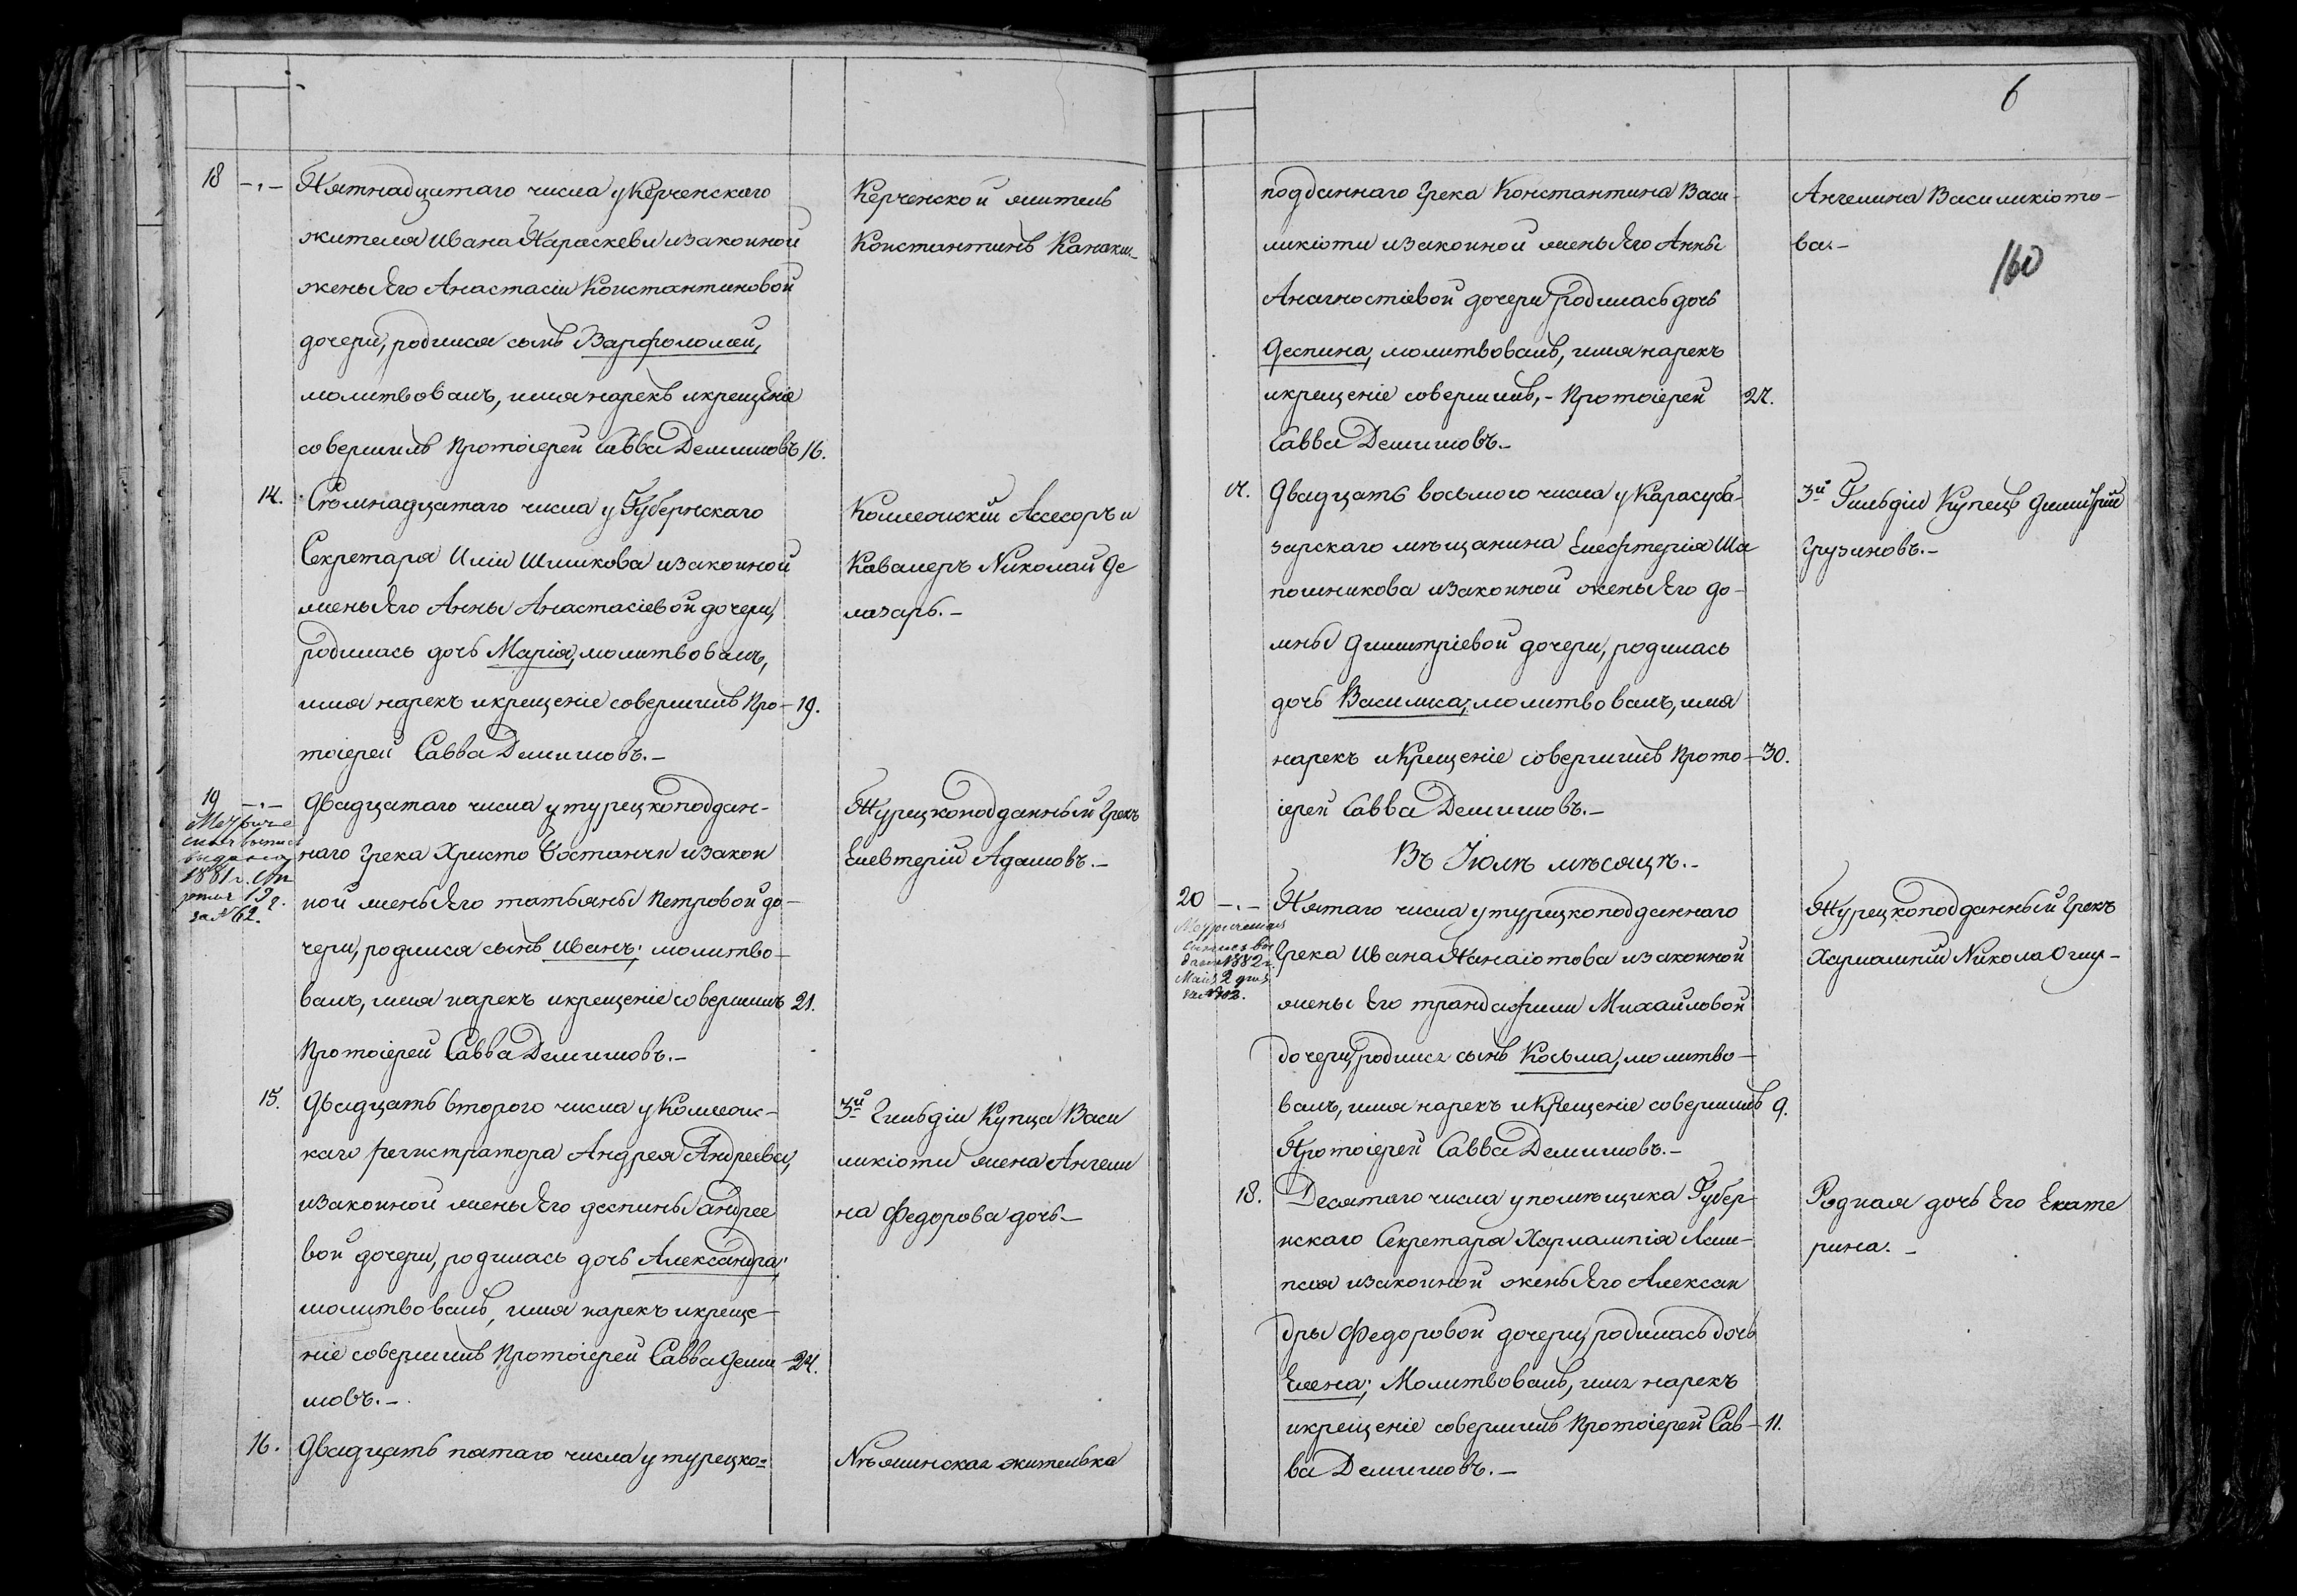 18 -"- Пятнадцатаго числа у Керченскаго
жителя Ивана Параскеви и законной
жены его Анастасіи Константиновой
дочери, родился сынъ Варфоломей,
молитвовалъ, имя нарекъ и крещеніе
совершилъ Протоіерей Савва Демишовъ 16.
Керченской житель
Константинъ Канаки.-
14. Седмнадцатаго числа у Губернскаго
Секретаря Иліи Шишкова и законной
жены его Анны Анастасіевой дочери,
родилась дочь Марія, молитвовалъ,
имя нарекъ и крещеніе совершилъ Про- 19.
тоіерей Савва Демишовъ.-
Коллежскій Ассесоръ и
Кавалеръ Николай Де
лазарь.-
19 -"- Двадцатаго числа у турецкоподдан-
наго Грека Христо Бостанчи и закон
ной жены его татьяны Петровой до-
чери, родился сынъ Иванъ; молитво-
валъ, имя нарекъ и крещеніе совершилъ 21.
Протоіерей Савва Демишовъ.-
1881 г.
за № 62.
Турецкоподданный Грекъ
Елевтерій Адамовъ.-
15. Двадцать втораго числа у Коллежс-
каго регистратора Андрея Андреева,
и законной жены его деспины андрее
вой дочери, родилась дочь Александра;
молитвовалъ, имя нарекъ и креще-
ніе совершилъ Протоіерей Савва Деми- 24.
шовъ.-
3й Гильдіи Купца Васи
ликіоти жена Ангели
на Федорова дочь-
16. Двадцать пятаго числа у турецко=
Нѣжинская жителька
6
160
подданнаго Грека Константина Васи-
ликіоти и законной жены его Анны
Анагностіевой дочери, родилась дочь
Деспина, молитвовалъ, имя нарекъ
и крещеніе совершилъ,- Протоіерей 27.
Савва Демишовъ.-
Ангелина Василикіото-
ва.-
17. Двадцать восьмого числа у Карасуба-
зарскаго мѣщанина Елефтерія Ша
пошникова и законной жены его До-
мны Димитріевой дочери, родилась
дочь Василиса; молитвовалъ, имя
нарекъ и Крещеніе совершилъ Прото- 30.
іерей Савва Демишовъ.-
3й Гильдіи Купецъ Димитрій
Грузиновъ.-
Въ Іюлѣ мѣсяцѣ.-
20 -"- Пятаго числа у турецкоподданнаго
Грека Ивана Панаіотова и законной
жены Его трандафили Михайловой
дочери, родился сынъ Косьма, молитво-
валъ, имя нарекъ и Крещеніе совершилъ 9.
Протоіерей Савва Демишовъ.-
1882 г.
Турецкоподданный Грекъ
Харлампій Никола Оглу-
18. Десятаго числа у помѣщика Губер-
нскаго Секретаря Харлампія Лам-
пси и законной жены его Алексан
дры Федоровой дочери, родилась дочь
Елена; Молитвовалъ, имя нарекъ
и крещеніе совершилъ Протоіерей Сав- 11.
ва Демишовъ.-
Родная дочь Его Екате
рина.-